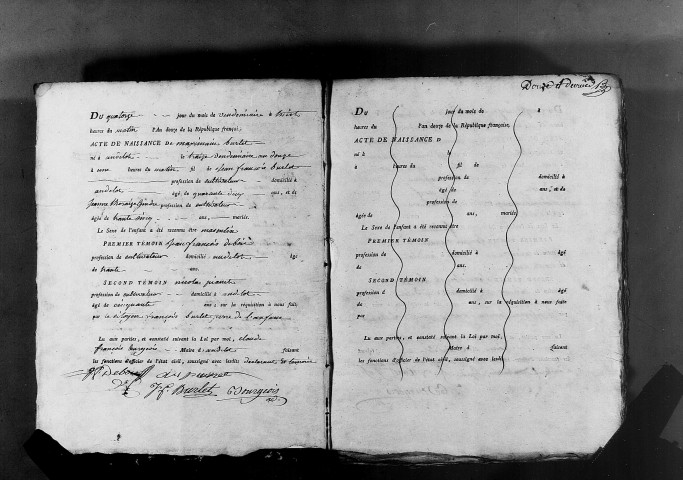 Du quatorze jour du mois de vendemiaire à huit
heures du matin l'an douze de la République française,
ACTE DE NAISSANCE de maximin burlet
né à andelot le treize vendemiaire an douze
à onze heures du matin fil de jean françois burlet
profession de cultivateur domicilié à
andelot âgé de quarante cinq ans, et de
jeanne profession de cultivateur
âgée de trente cinq ans, mariés.
Le Sexe de l'enfant a été reconnu être masculin
PREMIER TÉMOIN jean françois
profession de cultivateur domicilié andelot âgé
de trente ans.
SECOND TÉMOIN nicolas
profession de cultivateur domicilié à andelot
âgé de cinquante ans; sur la réquisition à nous faite
par le citoyen françois burlet pere de l'enfant
Lu aux parties, et constaté suivant la Loi par moi, claude
françois bourgeois Maire d'andelot faisant
les fonctions d'officier de l'état civil, soussigné avec lesdits declarant et temoins
J f Burlet CBourgeois
Douze et dernier
Du jour du mois de à
heures du l'an douze de la République française,
ACTE DE NAISSANCE de
né à le
à heures du fil de
profession de domicilié à
âgé de ans, et de
profession de
âgée de ans, mariés
Le Sexe de l'enfant a été reconnu être
PREMIER TÉMOIN
profession de domicilié à âgé
de ans.
SECOND TÉMOIN
profession d domicilié à âgé
de ans, sur la réquisition à nous faite
par
Lu aux parties, et constaté suivant la Loi par moi,
Maire d faisant
les fonctions d'officier de l'état civil, soussigné avec lesdits